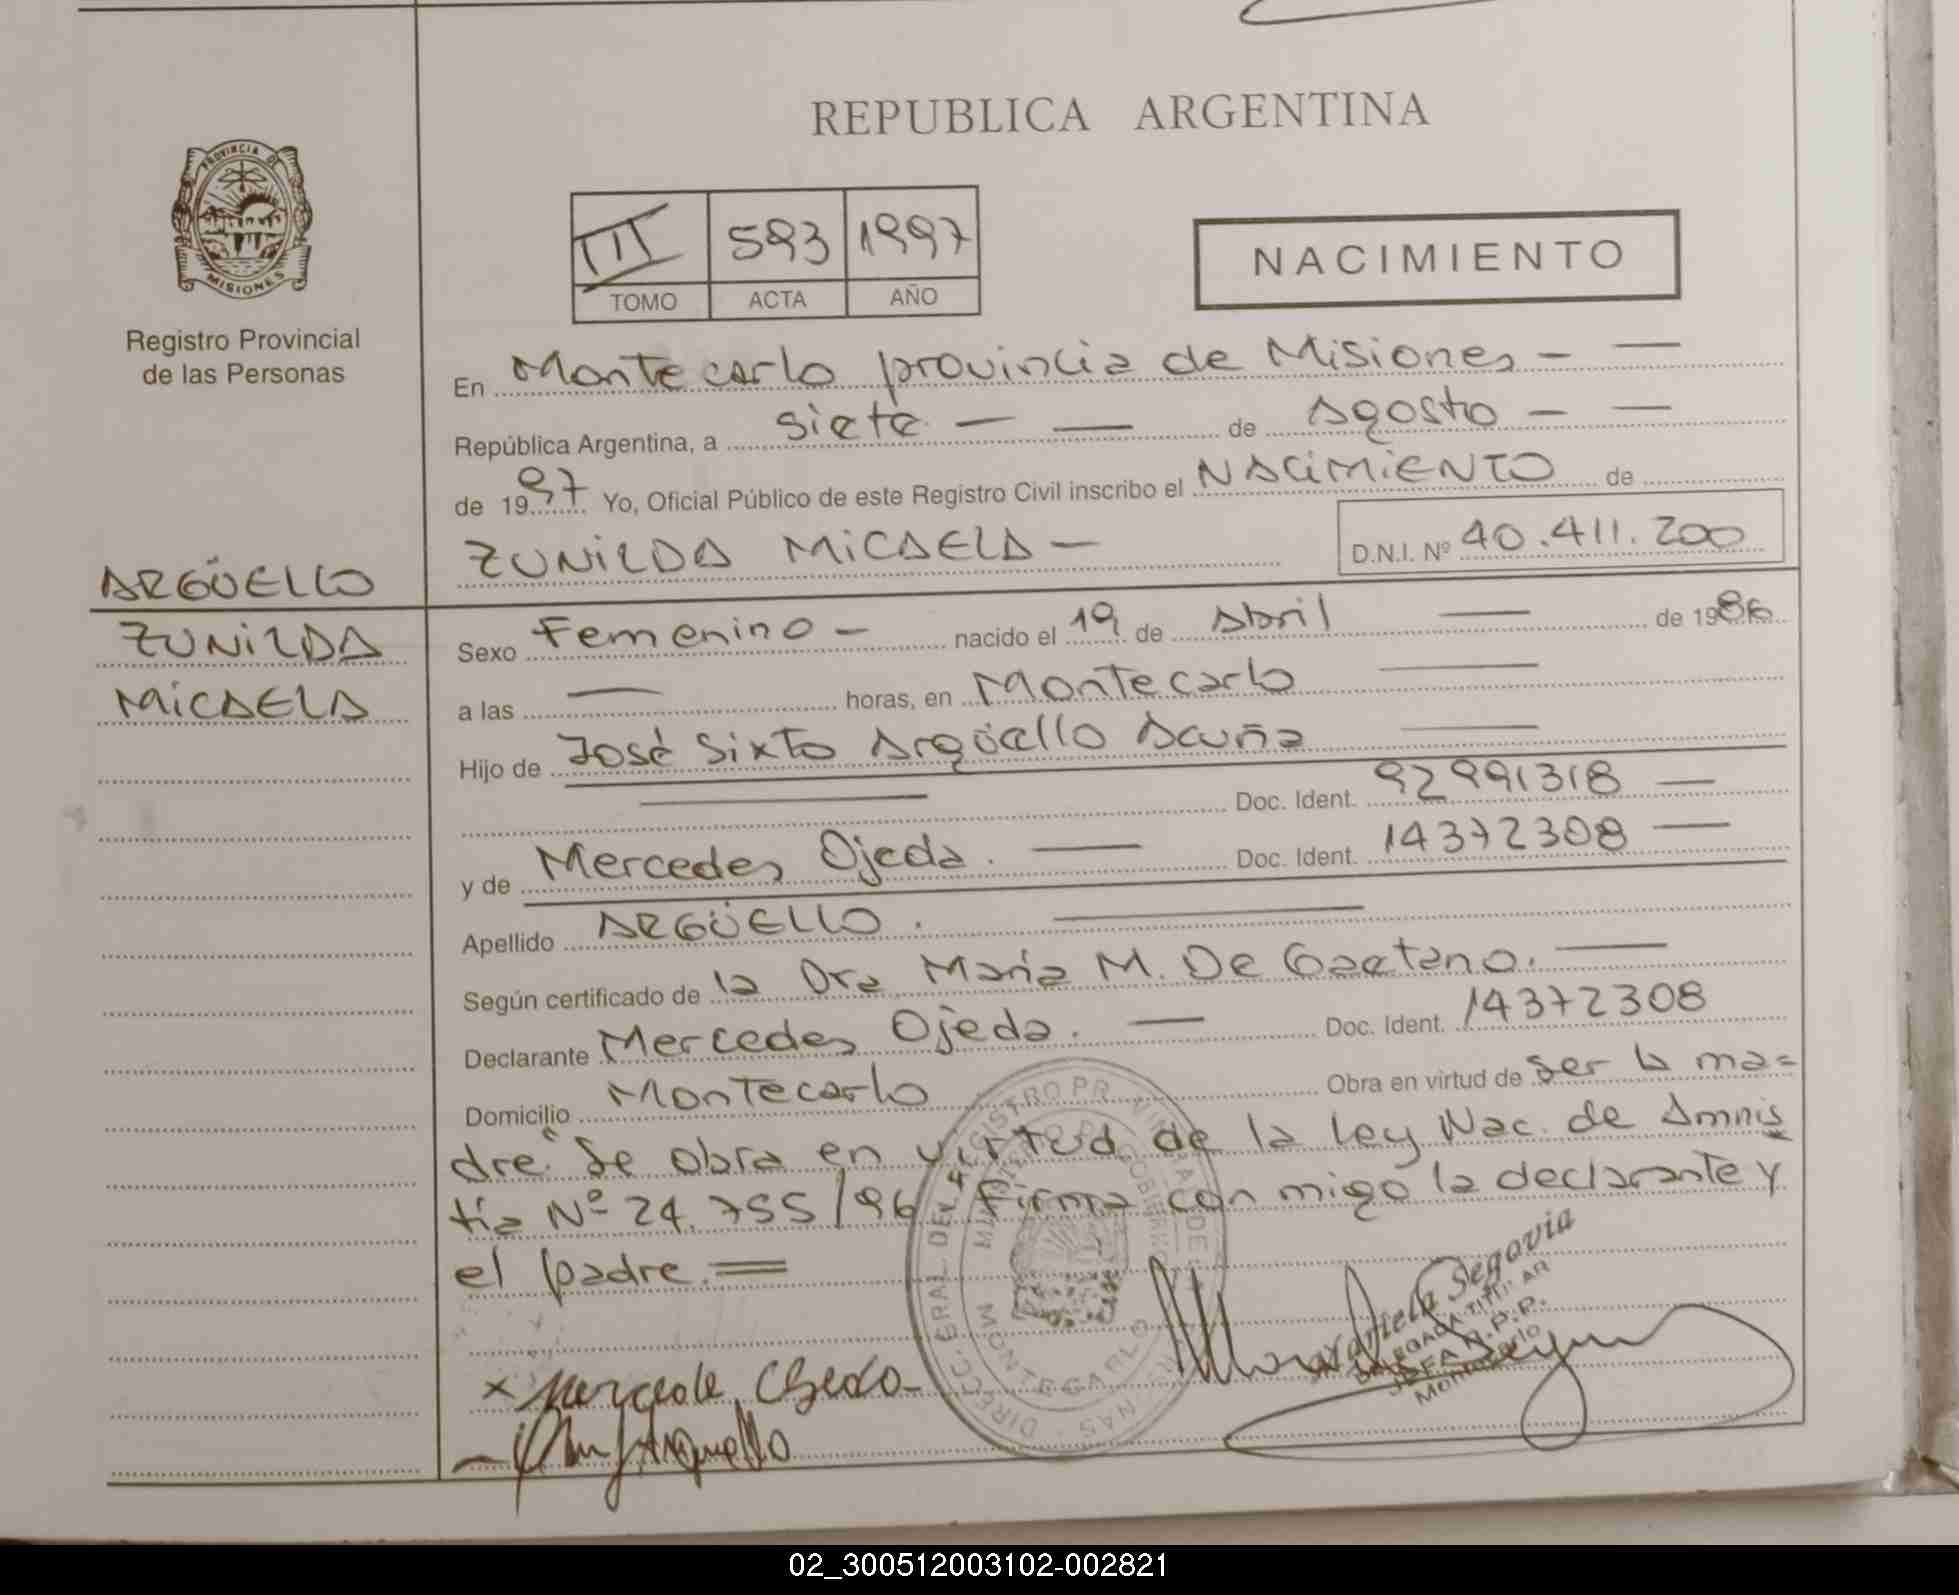 REPUBLICA ARGENTINA
PROVINCIA DE
MISIONES
Registro Provincial
de las Personas
III 593 1997
TOMO ACTA AÑO
NACIMIENTO
En Montecarlo provincia de Misiones - —
República Argentina, a siete - — de Agosto - —
de 1997 Yo, Oficial Público de este Registro Civil inscribo el NACIMIENTO de
ZUNILDA MICAELA — D.N.I. Nº 40.411.200
ARGÜELLO
ZUNILDA
MICAELA
Sexo Femenino - nacido el 19 de Abril — de 1986
a las — horas, en Montecarlo —
Hijo de José Sixto Argüello Acuña —
— Doc. Ident. 92991318 —
y de Mercedes Ojeda. — Doc. Ident. 14372308 —
Apellido ARGÜELLO. —
Según certificado de la Dra María M. De Gaetano. —
Declarante Mercedes Ojeda. — Doc. Ident. 14372308
Domicilio Montecarlo Obra en virtud de ser la ma=
dre." Se obra en virtud de la Ley Nac. de Amnis
tía Nº 24.755/96 Firma con migo la declarante y
el padre. =
x Mercede Ojeda
Arguello
DIRECC. GRAL DEL REGISTRO PROVINCIAL DE LAS
MINISTERIO DE GOBIERNO
MONTECARLO
Segovia
DELEGADA TITULAR
JEFA R.P.P.
Montecarlo
02_300512003102-002821